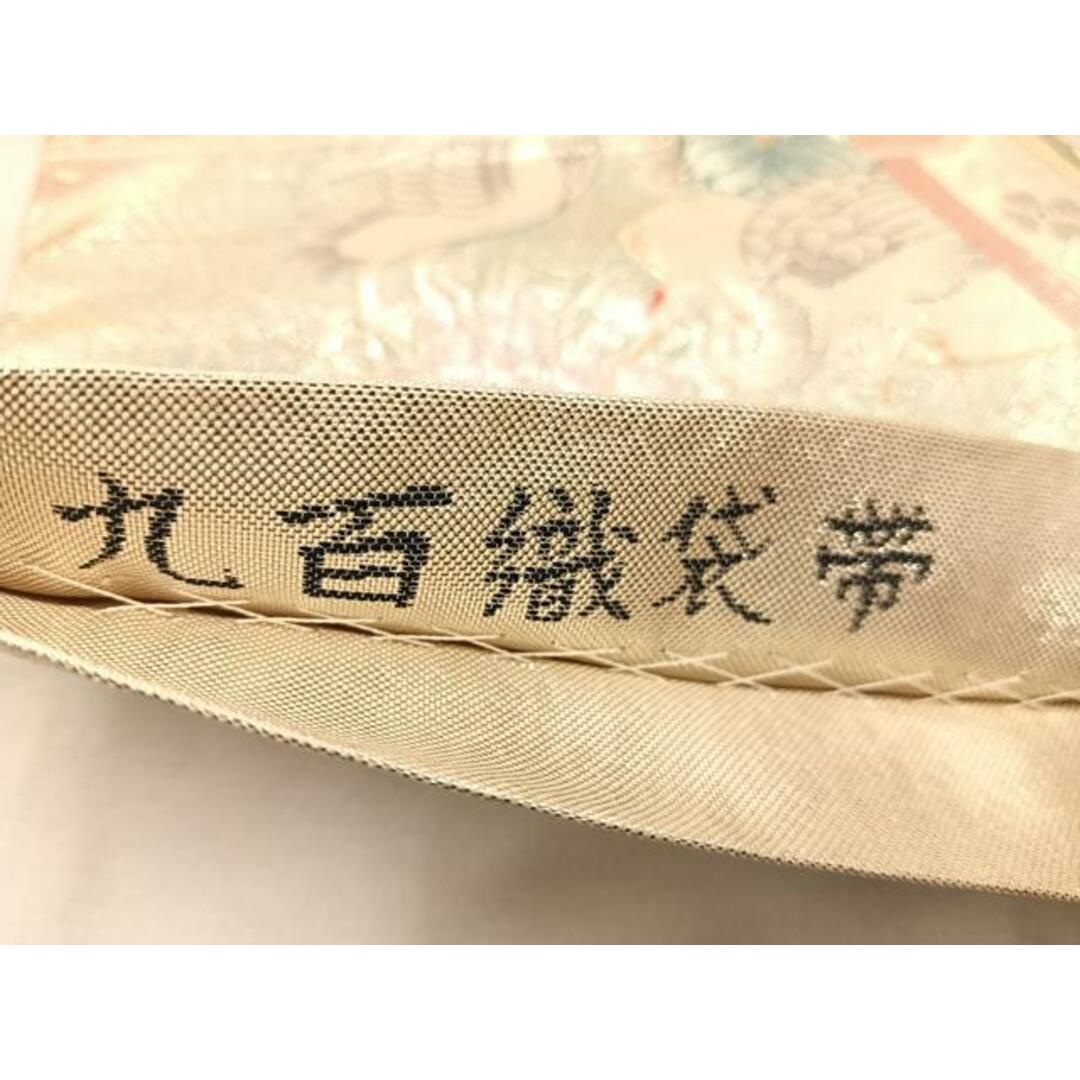 九百織袋帯